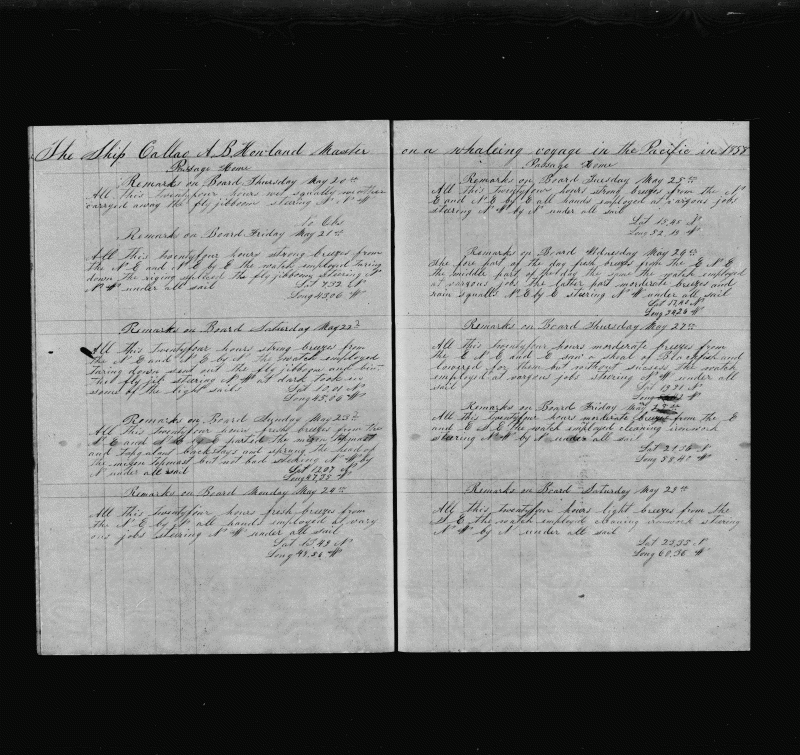 The Ship Callao A. B. Howland Master
Passage Home
Remarks on Board Thursday May 20th
All this twentyfour hours squally weather
carryed away the fly jibboom stearing N N W
No Obs
Remarks on Board Friday May 21st
All this twentyfour hours strong breezes from
the N E and N E by E the watch employed taring
down the riging the fly jibboom stearing N
N W under all sail Lat 7.52 N
Long 43.06 W
Remarks on Board Saturday May 22d
All this twentyfour hours strong breezes from
the N E and N E by N the watch employed
taring down sent out the fly jibboom and
fly jib stearing N W at dark took in
some of the light sails Lat 10.01 N
Long 45.06 W
Remarks on Board Sunday May 23th
All this twentyfour hours fresh breezes from the
N E and parted the mizen topmast
and topgalant backstays and sprung the head of
the mizen topmast but not bad stearing N W by
N under all sail Lat 12.07 N
Long 47.35 W
Remarks on Board Monday May 24th
All this twentyfour hours fresh breezes from
the N E by N all hands employed at vary
ous jobs stearing N W under all sail
Lat 13.49 N
Long 49.54 W
on a whaleing voyage in the Pacific in 1858
Passage Home
Remarks on Board Tuesday May 25th
All this twentyfour hours strong breezes from the N
E and N E by E all hands employed at varyous jobs
stearing N W by N under all sail
Lat 15.45 N
Long 52.19 W
Remarks on Board Wdnesday May 26th
the fore part of the day fresh breezes from the E N E
the middle part of the day the same the watch employed
at varyous jobs the latter part morderate breezes and
rain squalls N E by E stearing N W under all sail
Lat 17.40 N
Long W
Remarks on Board Thursday May 27th
All this twentyfour hours morderate breezes from
the E N E and E saw a shoal of Blackfish and
lowered for them but without sucsess the watch
employed at varyous jobs stearing N W under all
sail Lat 19.21 N
Long W
Remarks on Board Friday May
All this twentyfour hours morderate breezes from the E
and E S E the watch employed cleaning ironwork
stearing N W by N under all sail
Lat 21.36 N
Long 58.47 W
Remarks on Board Saturday May 29th
All this twentyfour hours light breezes from the
S E the watch employed cleaning ironwork stearing
N W by N under all sail
Lat 23.35 N
Long 60.36 W